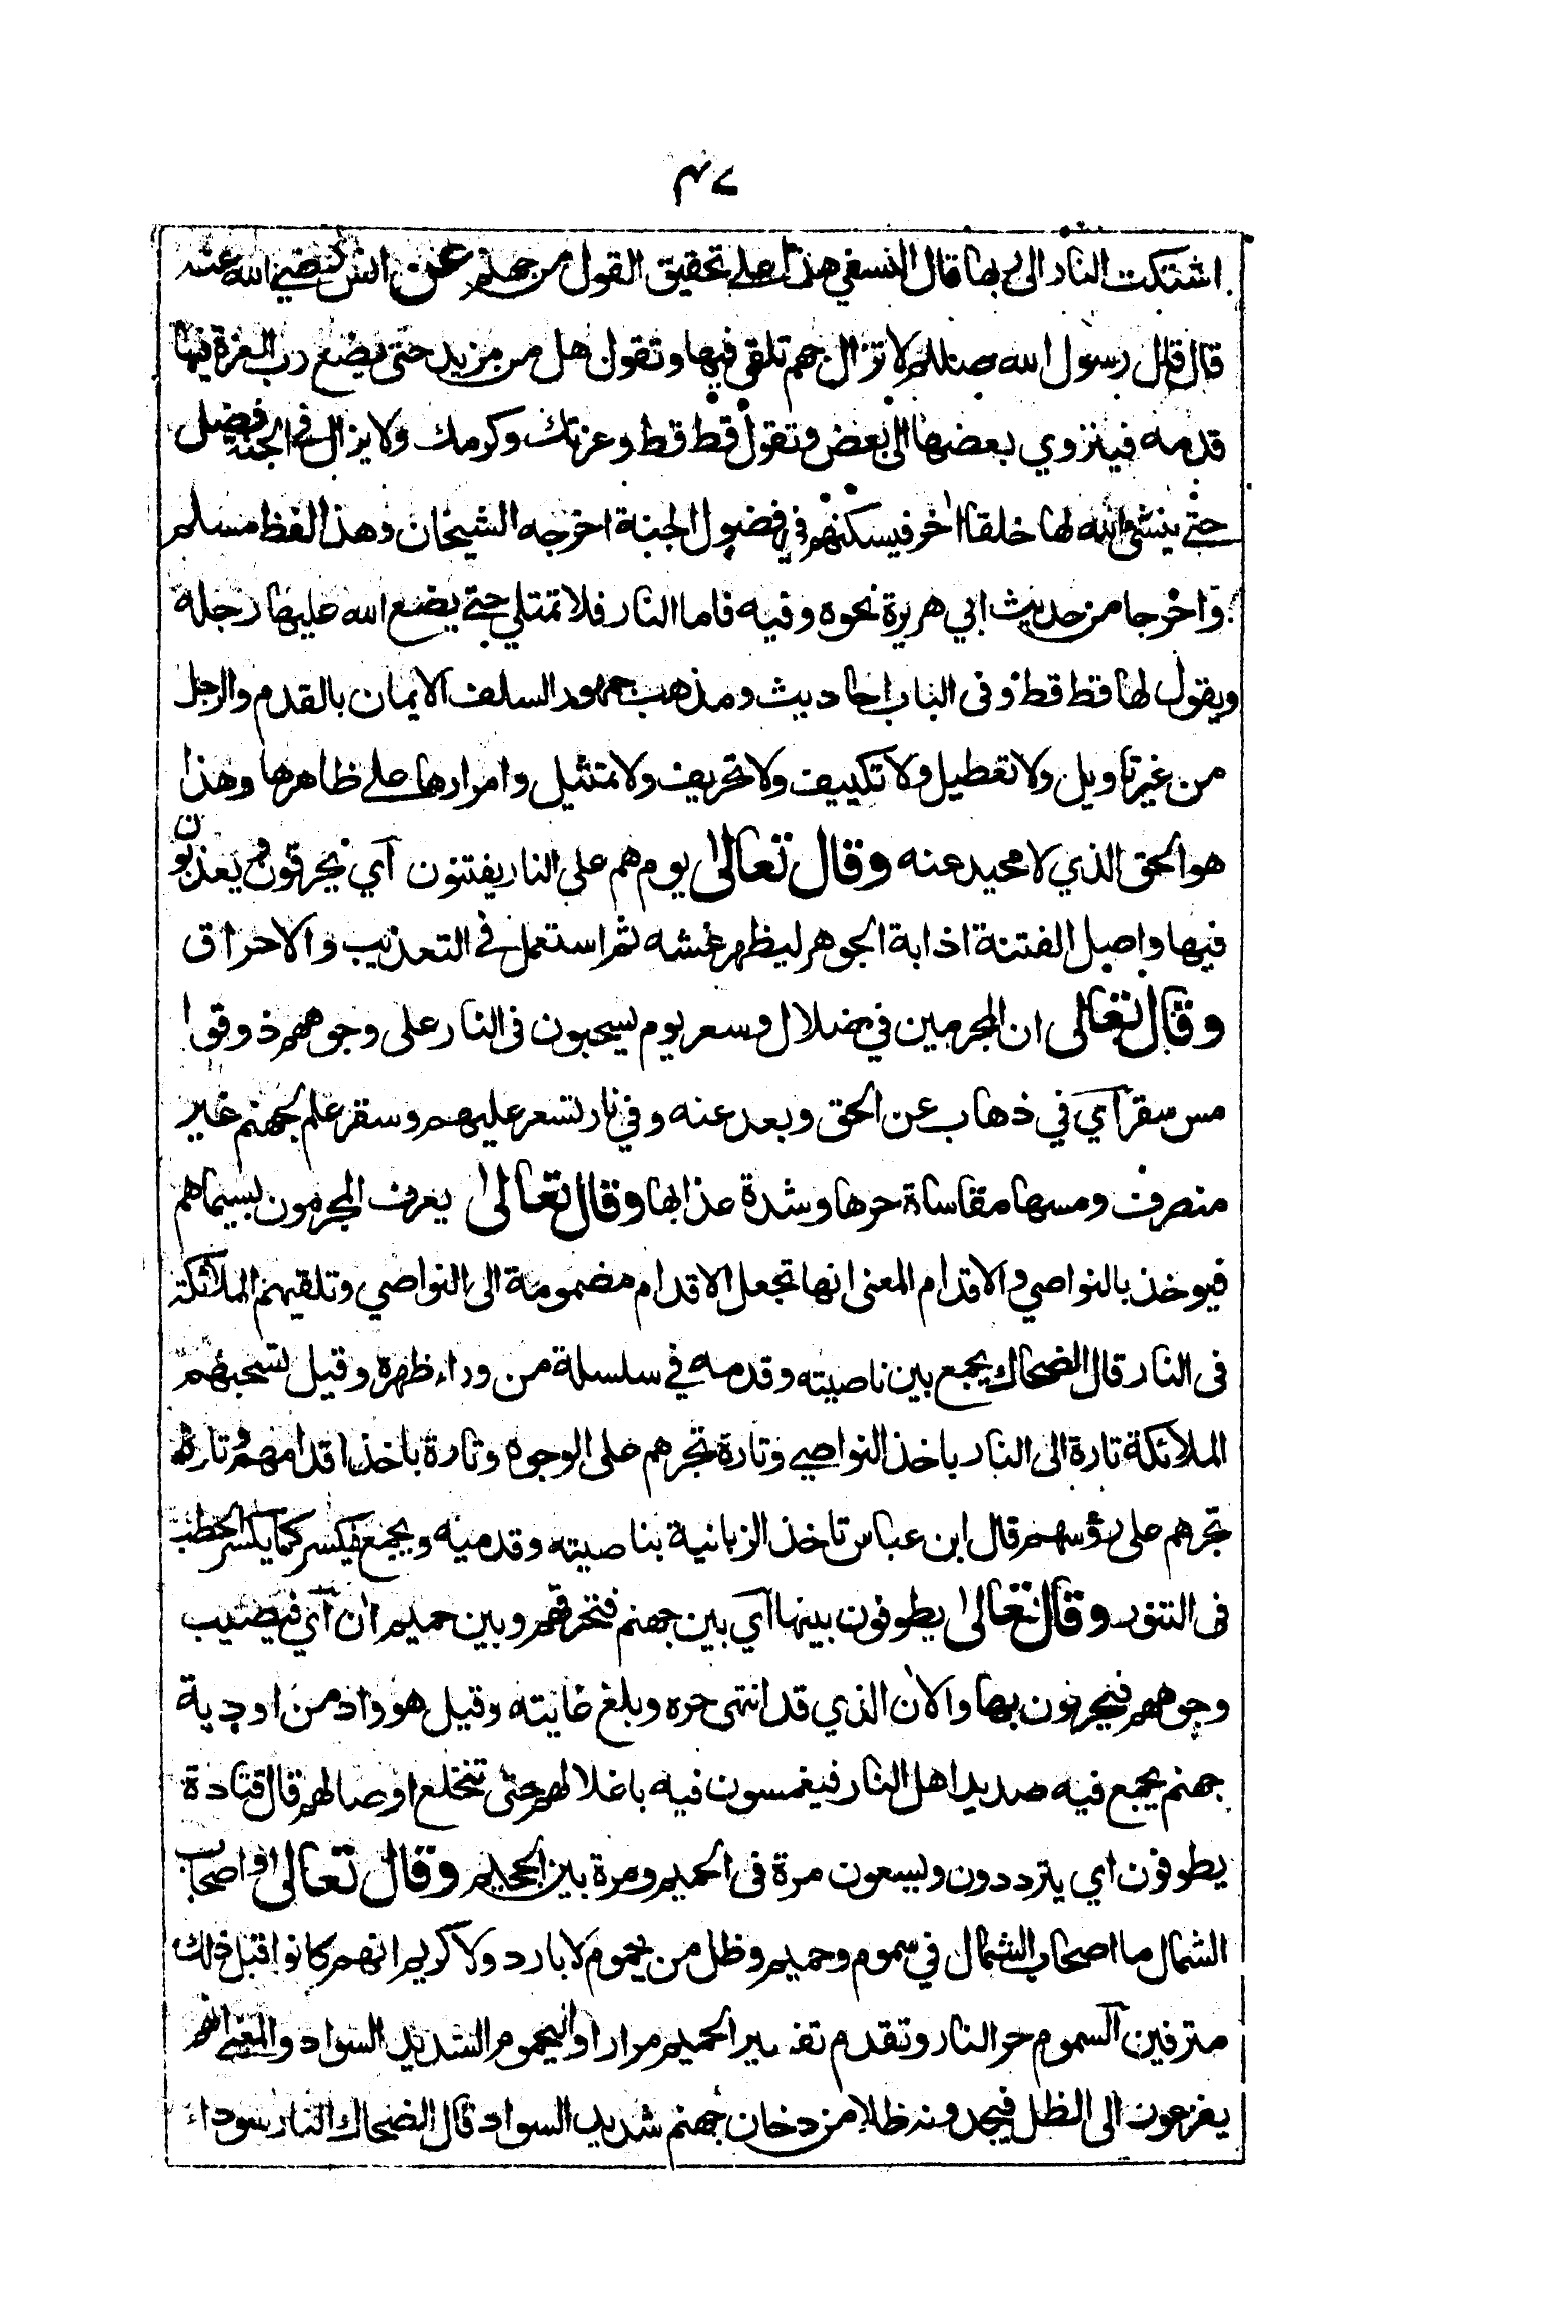 ٤٧
اشتكت النار الى ربها قال النسفي هذا على تحقيق القول من جهنم عن انس رضي الله عنه
قال قال رسول الله صللم لا تزال جهنم تلقى فيها وتقول هل من مزيد حتى يضع رب العزة فيها
قدمه فينزوي بعضها الى بعض وتقول قط قط وعزتك وكرمك ولا يزال في الجنة فضل
حتى ينشئ الله لها خلقا اخر فيسكنهم في فضول الجنة اخرجه الشيخان وهذا لفظ مسلم
واخرجا من حديث ابي هريرة نحوه وفيه فاما النار فلا تمتلي حتى يضع الله عليها رجله
ويقول لها قط قط وفى الباب احاديث ومذهب جمهور السلف الايمان بالقدم والرجل
من غير تاويل ولا تعطيل ولا تكييف ولا تحريف ولا تمثيل وامرارها على ظاهرها وهذا
هو الحق الذي لا محيد عنه وقال تعالى يوم هم على النار يفتنون آي يحرقون ويعذبون
فيها واصل الفتنة اذابة الجوهر ليظهر غشه ثم استعمل في التعذيب والاحراق
وقال تعالى ان المجرمين في ضلال وسعر يوم يسحبون فى النار على وجوههم ذوقوا
مس سقر آي في ذهاب عن الحق وبعد عنه وفي نار تسعر عليهم وسقر علم لجهنم غير
منصرف ومسها مقاساة حرها وشدة عذابها وقال تعالى يعرف المجرمون بسيماهم
فيوخذ بالنواصي والاقدام المعنى انها تجعل الاقدام مضمومة الى النواصي وتلقيهم الملائكة
فى النار قال الضحاك يجمع بين ناصيته وقدمه في سلسلة من وراء ظهره وقيل تسحبهم
الملائكة تارة الى النار باخذ النواصي وتارة تجرهم على الوجوه وتارة باخذ اقدامهم وتارة
تجرهم على رؤسهم قال ابن عباس تاخذ الزبانية بناصيته وقدميه ويجمع فيكسر كما يكسر الحطب
فى التنور وقال تعالى يطوفون بينها آي بين جهنم فتحرقهم وبين حميم ان آي فيصيب
وجوههم فيحرنون بها والان الذي قد انتهى حره وبلغ غايته وقيل هو واد من اودية
جهنم يجمع فيه صديد اهل النار فيغمسون فيه باغلالهم حتى تنخلع اوصالهم قال قتادة
يطوفون اي يترددون ويسعون مرة فى الحميم ومرة بين الجحيم وقال تعالى واصحاب
الشمال ما اصحاب الشمال في سموم وحميم وظل من يحموم لا بارد ولا كريم انهم كانوا قبل ذلك
مترفين آلسموم حر النار وتقدم تفسير الحميم مرارا واليحموم الشديد السواد والمعنى انهم
يفزعون الى الظل فيجدونه ظلا من دخان جهنم شديد السواد قال الضحاك النار سوداء